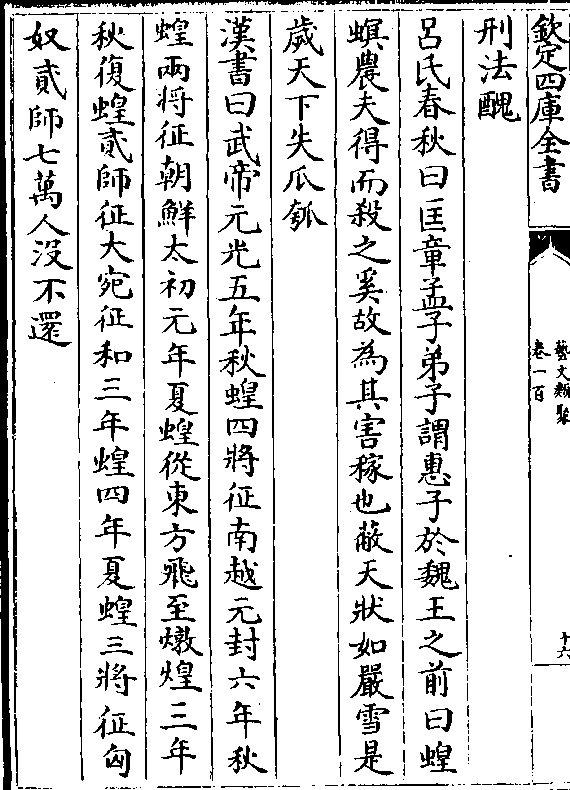 欽定四庫全書
藝文類聚
卷一百
十六
刑法醜
呂氏春秋曰匡章孟子弟子謂惠子於魏王之前曰蝗
螟農夫得而殺之奚故為其害稼也蔽天狀如嚴雪是
歲天下失瓜瓠
漢書曰武帝元光五年秋蝗四將征南越元封六年秋
蝗兩將征朝鮮太初元年夏蝗從東方飛至燉煌三年
秋復蝗貳師征大宛征和三年蝗四年夏蝗三將征匈
奴貳師七萬人沒不還